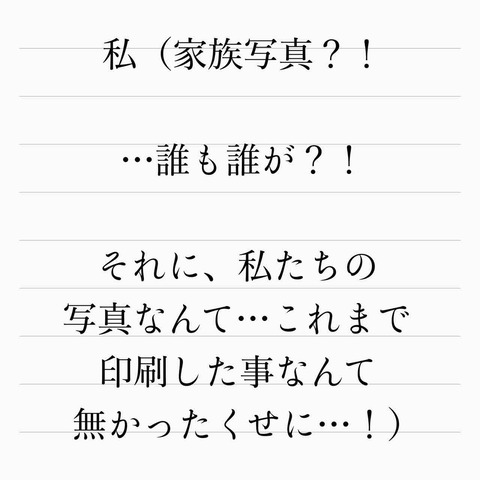 私（家族写真？！
…誰も誰が？！
それに、私たちの
写真なんて…これまで
印刷した事なんて
無かったくせに…！）